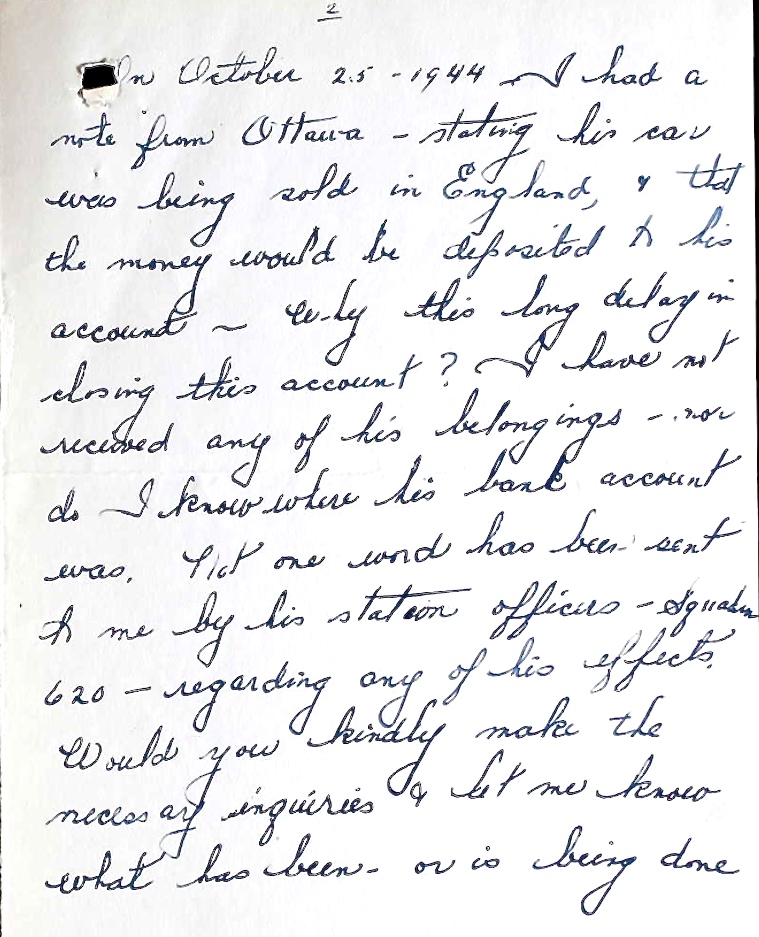 2
In October 25-1944 I had a
note from Ottawa - stating his car
was being sold in England, & that
the money would be deposited to his
account - Why this long delay in
closing this account? I have not
received any of his belongings - nor
do I know where his bank account
was. Not one word has been sent
to me by his station officers - Squadron
620 - regarding any of his effects.
Would you kindly make the
necessary inquiries & let me know
what has been - or is being done